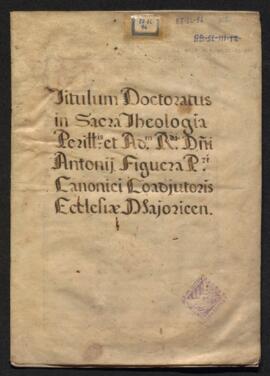 Titulum Doctoratus
in Sacra Theologia
Perill.is et Ad.m R.di Dñi
Antonij Figuera P.ri
Canonici Coadjutoris
Ecclesiæ Majoricen.